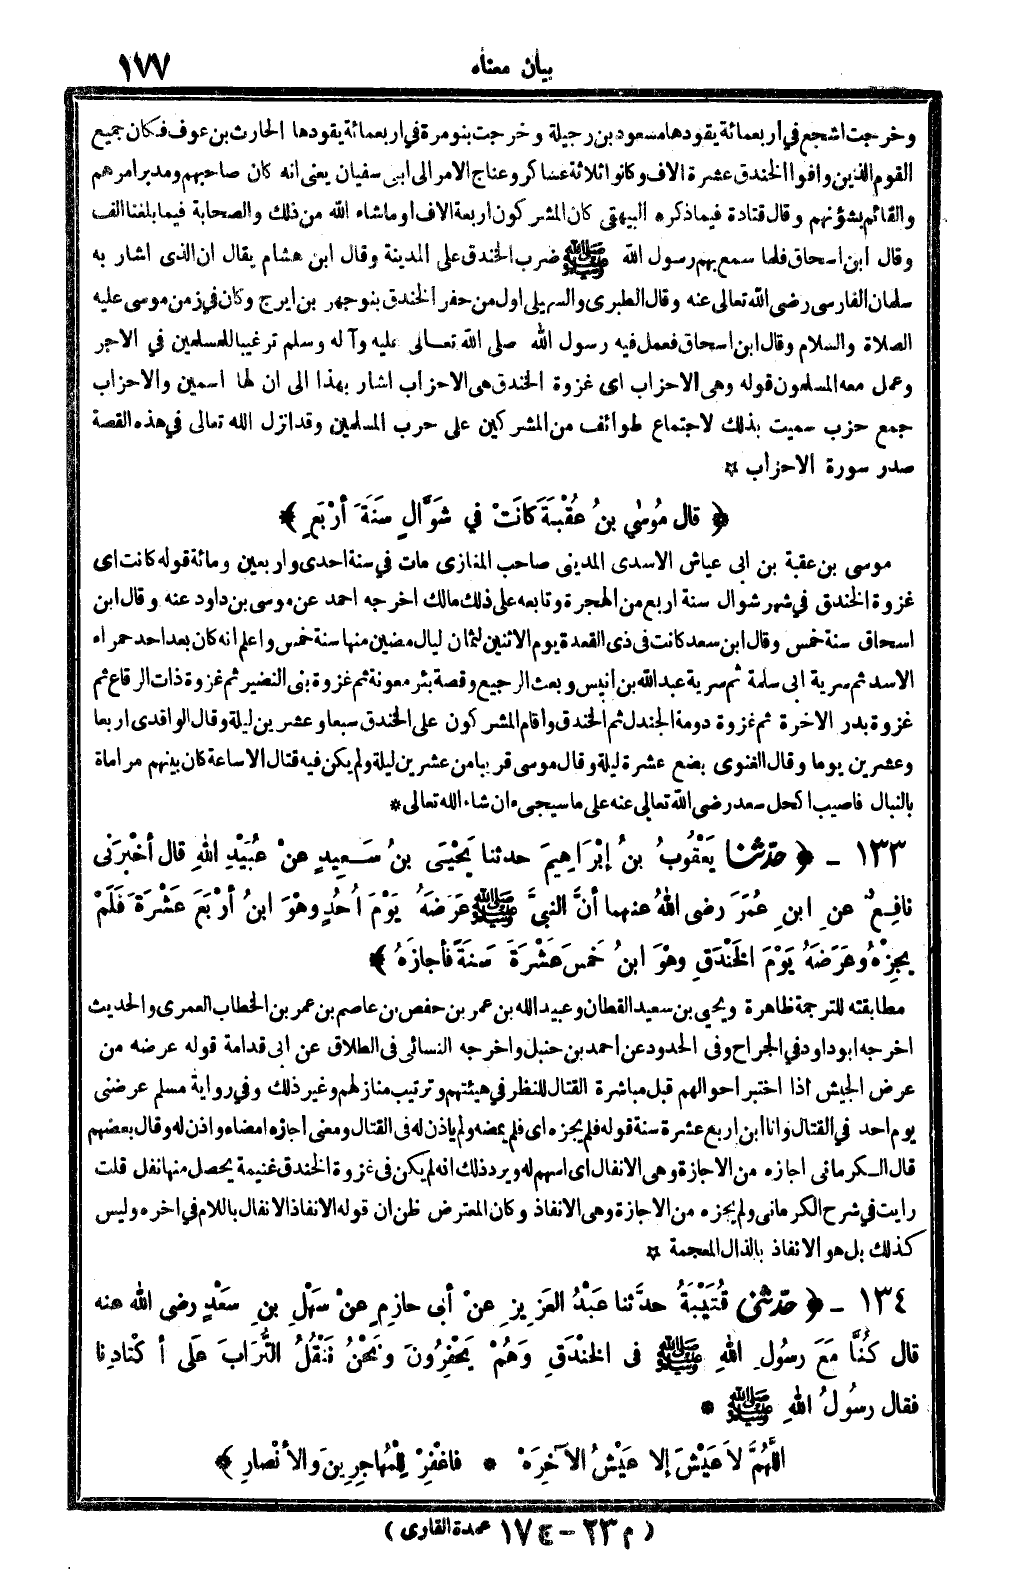 بيان معناه ١٧٧
وخرجت اشجع في اربعمائة يقودها مسعود بن رجيلة وخرجت بنو مرة في اربعمائة يقودها الحارث بن عوف فكان جميع
القوم الذين وافوا الخندق عشرة الاف وكانوا ثلاثة عساكر وعناج الامر الى ابى سفيان يعنى انه كان صاحبهم ومدبر امرهم
والقائم بشؤنهم وقال قتادة فيما ذكره البيهقى كان المشركون اربعة الاف او ماشاء الله من ذلك والصحابة فيما بلغنا الف
وقال ابن اسحاق فلما سمع بهم رسول الله ﷺ ضرب الخندق على المدينة وقال ابن هشام يقال ان الذى اشار به
سلمان الفارسى رضى الله تعالى عنه وقال الطبرى والسهيلى اول من حفر الخندق بنوجهر بن ايرج وكان في زمن موسى عليه
الصلاة والسلام وقال ابن اسحاق فعمل فيه رسول الله صلى الله تعالى عليه وآله وسلم ترغيبا للمسلمين في الاجر
وعمل معه المسلمون قوله وهى الاحزاب اى غزوة الخندق هى الاحزاب اشار بهذا الى ان لها اسمين والاحزاب
جمع حزب سميت بذلك لاجتماع طوائف من المشركين على حرب المسلمين وقد انزل الله تعالى في هذه القصة
صدر سورة الاحزاب ☆
﴿ قال مُوسٰي بنُ عُقْبَةَ كانَتْ في شَوَّالٍ سَنَةَ أرْبَعٍ ﴾
موسى بن عقبة بن ابى عياش الاسدى المدينى صاحب المغازى مات في سنة احدى واربعين ومائة قوله كانت اى
غزوة الخندق في شهر شوال سنة اربع من الهجرة وتابعه على ذلك مالك اخرجه احمد عن موسى بن داود عنه وقال ابن
اسحاق سنة خمس وقال ابن سعد كانت فى ذى القعدة يوم الاثنين لثمان ليال مضين منها سنة خمس واعلم انه كان بعد احد حمراء
الاسد ثم سرية ابى سلمة ثم سرية عبدالله بن انيس وبعث الرجيع وقصة بئر معونة ثم غزوة بنى النضير ثم غزوة ذات الرقاع ثم
غزوة بدر الاخرة ثم غزوة دومة الجندل ثم الخندق واقام المشركون على الخندق سبعا وعشرين ليلة وقال الواقدى اربعا
وعشرين يوما وقال الغنوى بضع عشرة ليلة وقال موسى قريبا من عشرين ليلة ولم يكن فيه قتال الا ساعة كان بينهم مراماة
بالنبال فاصيب اكحل سعد رضى الله تعالى عنه على ما سيجىء ان شاء الله تعالى *
١٣٣ - ﴿ حدّثنا يَعْقُوبُ بنُ إبْرَاهِيمَ حدثنا يَحْيَى بنُ سَعِيدٍ عنْ عُبَيْدِ اللهِ قال أخْبرَنى
نافِعٌ عنِ ابنِ عُمَرَ رضى اللهُ عنهما أنَّ النبيَّ ﷺ عَرَضَهُ يَوْمَ اُحُدٍ وهْوَ ابنُ أرْبَعَ عَشْرَةَ فَلَمْ
يجِزْهُ وعَرَضَهُ يَوْمَ الخَنْدَقِ وهْوَ ابنُ خَمسَ عَشْرَةَ سَنةً فأجازَهُ ﴾
مطابقته للترجمة ظاهرة ويحيى بن سعيد القطان وعبيدالله بن عمر بن حفص بن عاصم بن عمر بن الخطاب العمرى والحديث
اخرجه ابو داود في الجراح وفى الحدود عن احمد بن حنبل واخرجه النسائى فى الطلاق عن ابى قدامة قوله عرضه من
عرض الجيش اذا اختبر احوالهم قبل مباشرة القتال للنظر في هيئتهم وترتيب منازلهم وغير ذلك وفي رواية مسلم عرضنى
يوم احد في القتال وانا ابن اربع عشرة سنة قوله فلم يجزه اى فلم يمضه ولم ياذن له فى القتال ومعنى اجازه امضاه واذن له وقال بعضهم
قال الكرمانى اجازه من الاجازة وهى الانفال اى اسهم له ويرد ذلك انه لم يكن في غزوة الخندق غنيمة يحصل منها نفل قلت
رايت في شرح الكرمانى ولم يجزه من الاجازة وهى الانفاذ وكان المعترض ظن ان قوله الانفاذ الانفال باللام في اخره وليس
كذلك بل هو الانفاذ بالذال المعجمة ☆
١٣٤ - ﴿ حدّثنى قُتَيْبَةُ حدّثنا عَبْدُ العَزِيزِ عنْ أبى حازِمٍ عنْ سَهْلِ بنِ سَعْدٍ رضى الله عنه
قال كُنَّا مَعَ رسُولِ اللهِ ﷺ فى الخنْدَقِ وَهُمْ يَحْفِرُونَ ونَحْنُ نَنْقُلُ التُّرَابَ علَى أكْتادِنا
فقال رسُولُ اللهِ ﷺ *
اللّٰهُمَّ لاَ عَيْشَ إلا عَيْشُ الآخِرَهْ * فاغْفِرْ لِلْمُهاجِرِينَ والأنْصارِ ﴾
( م ٢٣ - ج ١٧ عمدة القارى )